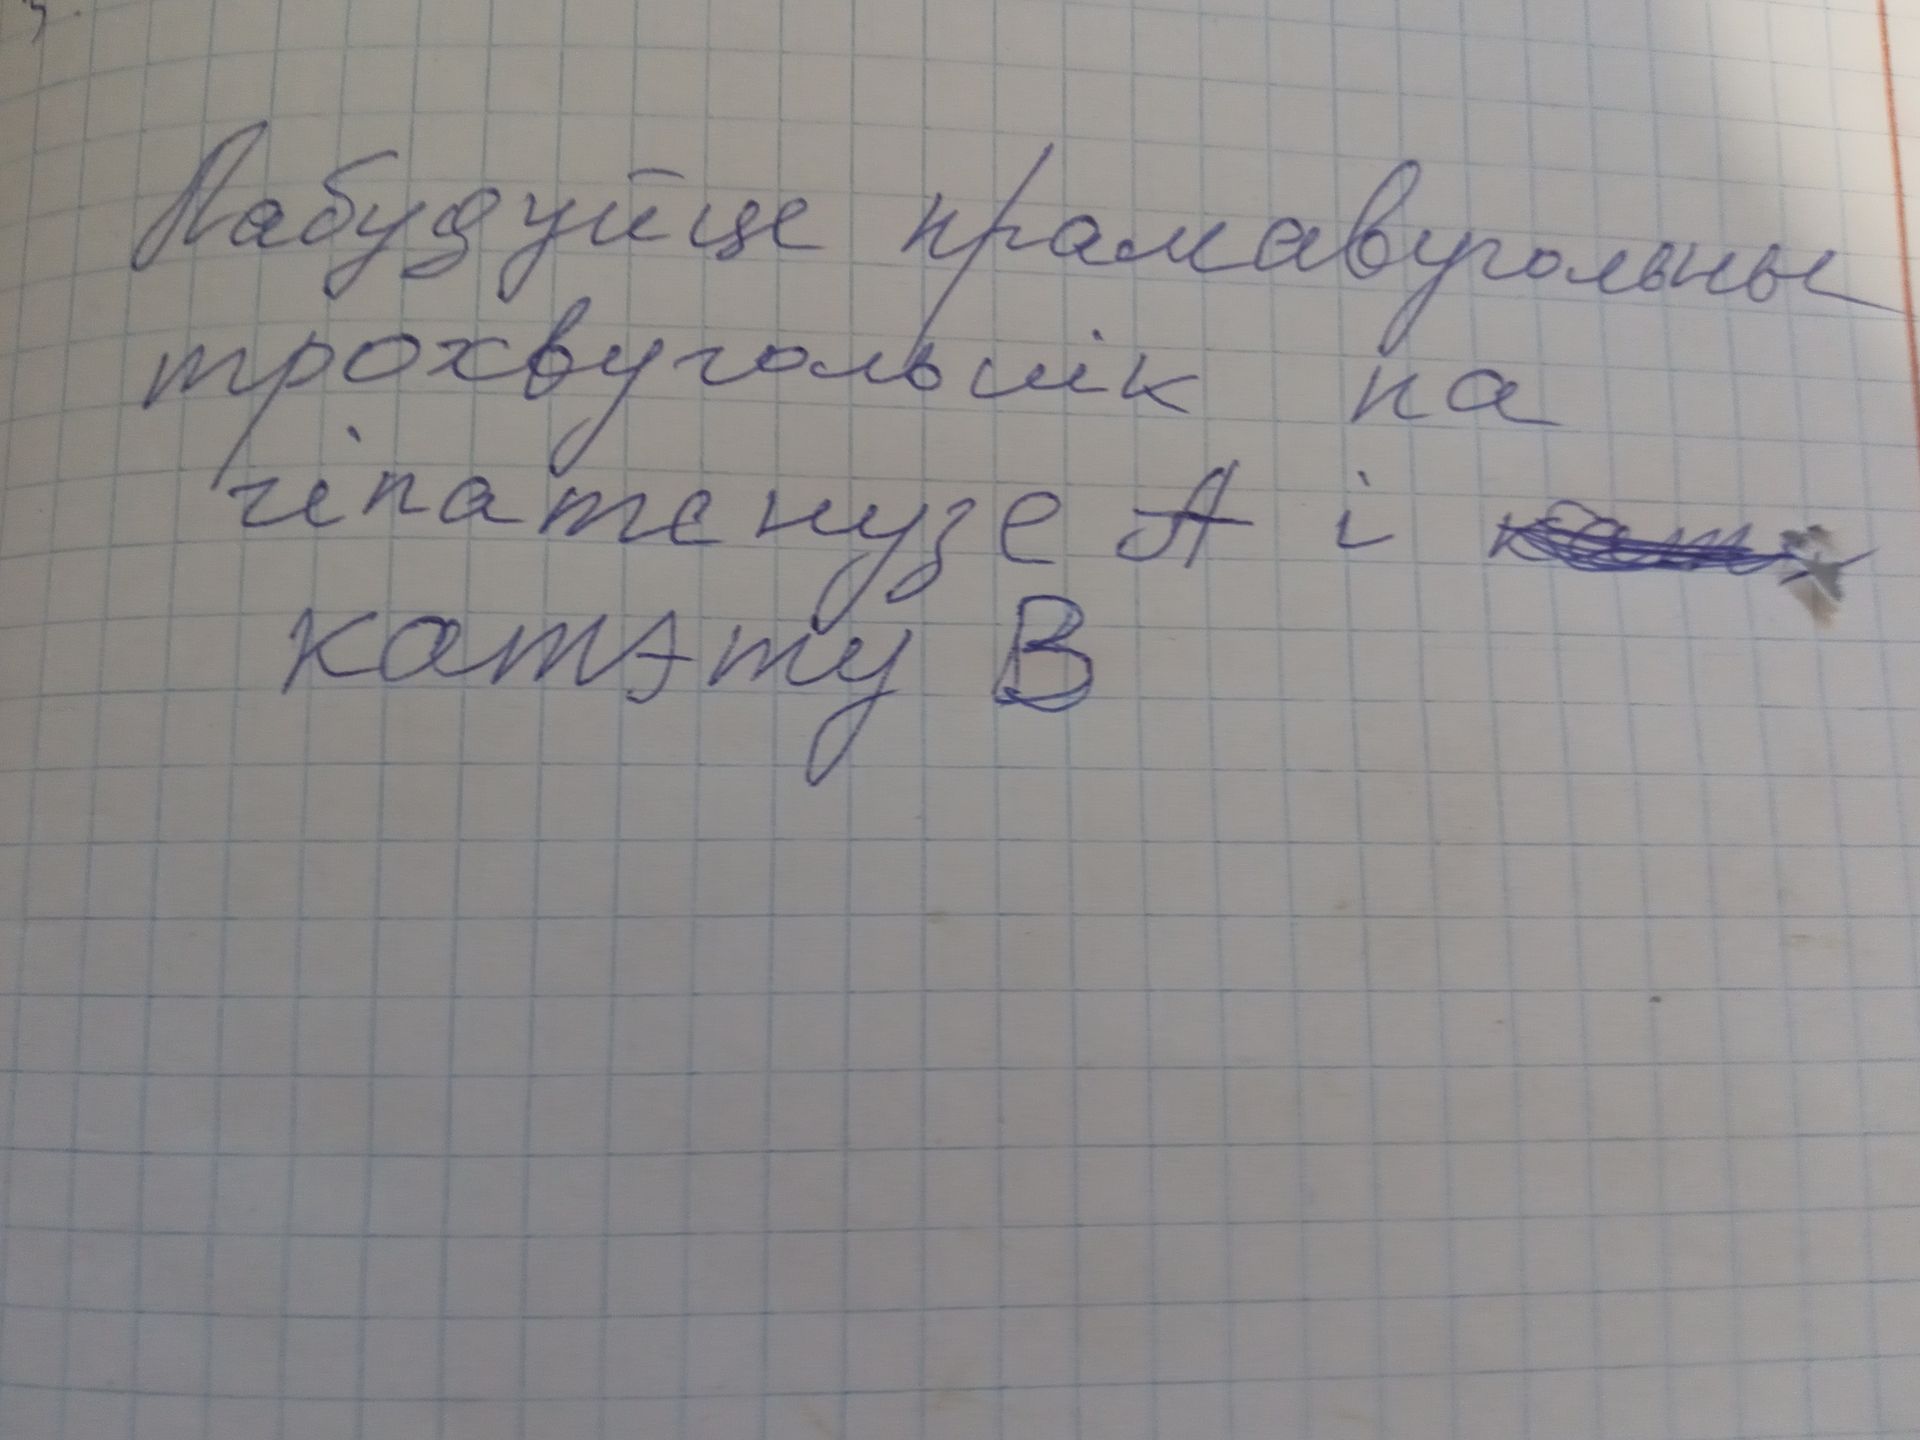 Пабудуйце прамавугольны
трохвугольнік па
гіпатенузе А і
катэту В